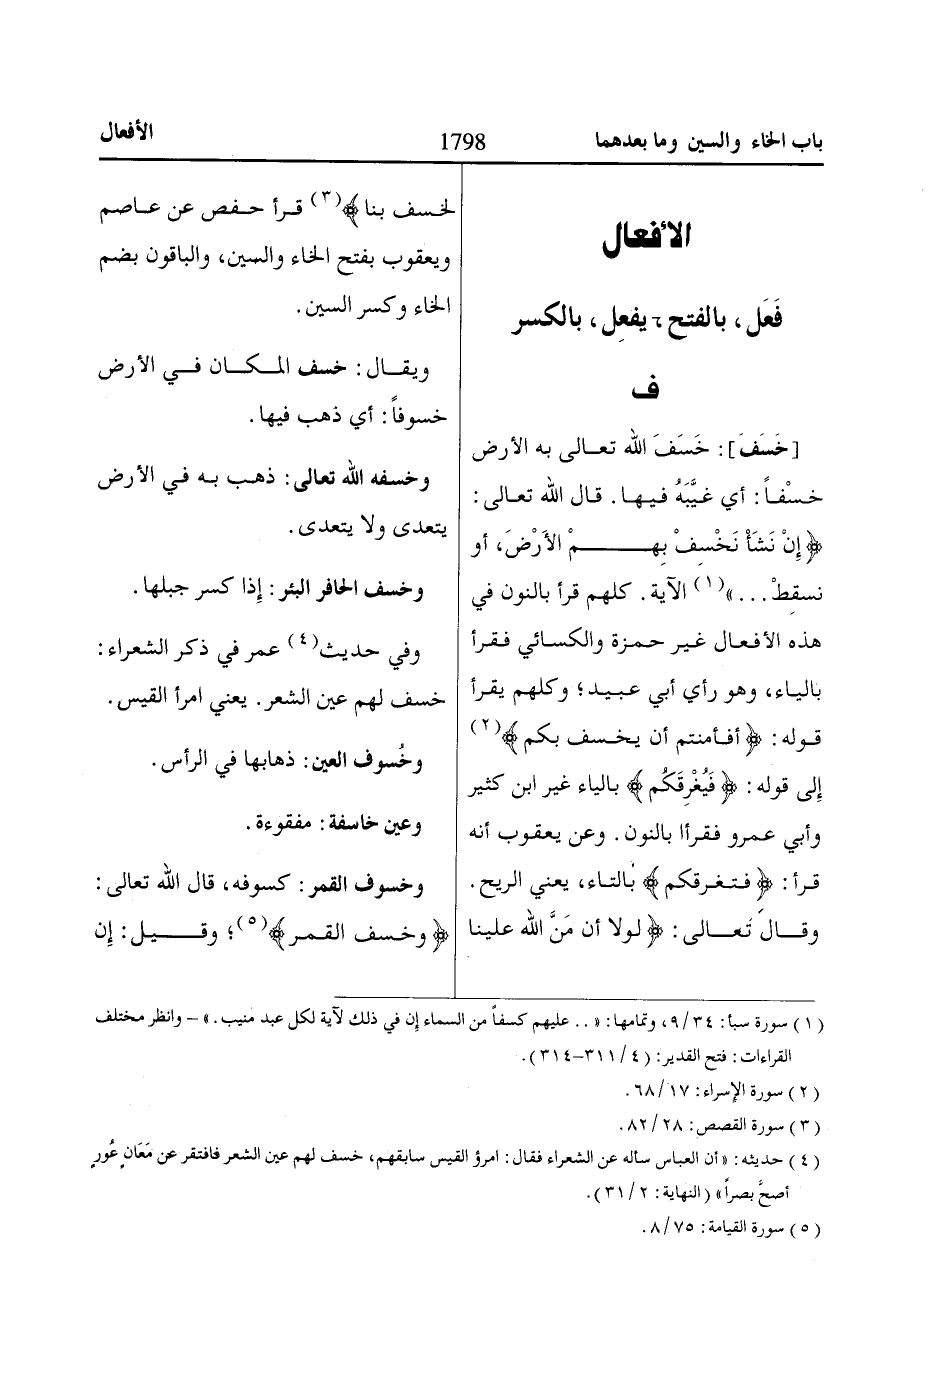 باب الخاء والسين وما بعدهما
1798
الأفعال
الأفعال
فَعَل، بالفتح يفعِل، بالكسر
ف
[خَسَفَ]: خَسَفَ الله تعالى به الأرض
خسْفاً: أي غيَّبَهُ فيها. قال الله تعالى:
﴿إِنْ نَشَأْ نَخْسِفْ بِهِمْ الأَرْضَ، أو
نسقِطْ...»(١) الآية. كلهم قرأ بالنون في
هذه الأفعال غير حمزة والكسائي فقرأ
بالياء، وهو رأي أبي عبيد؛ وكلهم يقرأ
قوله: ﴿أفأمنتم أن يخسف بكم﴾(٢)
إلى قوله: ﴿فَيُغْرِقَكُم﴾ بالياء غير ابن كثير
وأبي عمرو فقرأا بالنون. وعن يعقوب أنه
قرأ: ﴿فتغرقكم﴾ بالتاء، يعني الريح.
وقال تَعالى: ﴿لولا أن مَنَّ الله علينا
لخسف بنا﴾(٣) قرأ حفص عن عاصم
ويعقوب بفتح الخاء والسين، والباقون بضم
الخاء وكسر السين.
ويقال: خسف المكان في الأرض
خسوفاً: أي ذهب فيها.
وخسفه الله تعالى: ذهب به في الأرض
يتعدى ولا يتعدى.
وخسف الحافر البئر: إذا كسر جبلها.
وفي حديث(٤) عمر في ذكر الشعراء:
خسف لهم عين الشعر. يعني امرأ القيس.
وخُسوف العين: ذهابها في الرأس.
وعين خاسفة: مفقوءة.
وخسوف القمر: كسوفه، قال الله تعالى:
﴿وخسف القمر﴾(٥)؛ وقيل: إن
(١) سورة سبأ: ٩/٣٤، وتمامها: «.. عليهم كسفاً من السماء إن في ذلك لآية لكل عبد منيب.» – وانظر مختلف
القراءات: فتح القدير: (٤/٣١١-٣١٤).
(٢) سورة الإسراء: ٦٨/١٧.
(٣) سورة القصص: ٨٢/٢٨.
(٤) حديثه: «أن العباس سأله عن الشعراء فقال: امرؤ القيس سابقهم، خسف لهم عين الشعر فافتقر عن مَعَانٍ عُورٍ
أصحَّ بصراً» (النهاية: ٣١/٢).
(٥) سورة القيامة: ٨/٧٥.